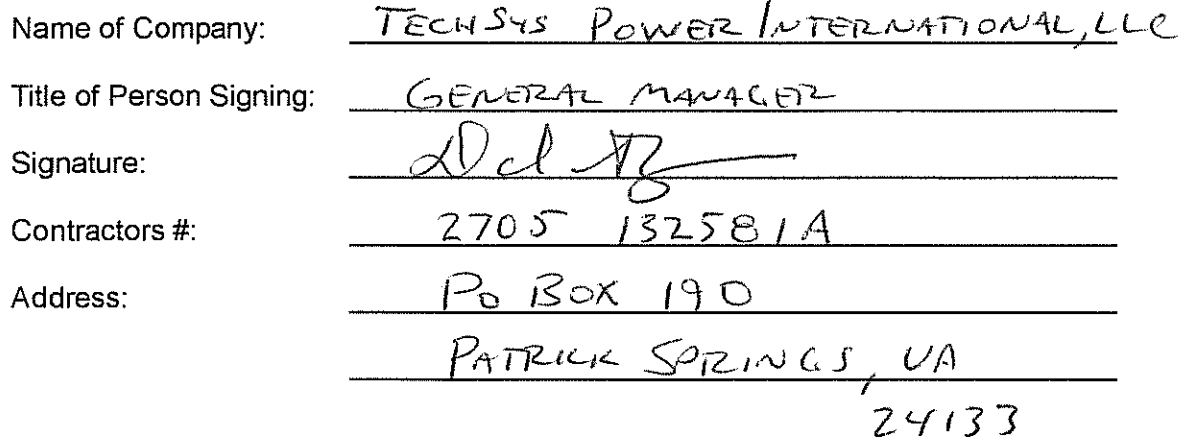 Name of Company: TECHSYS POWER INTERNATIONAL, LLC
Title of Person Signing: GENERAL MANAGER
Signature:
Contractors #: 2705 132581A
Address: PO BOX 190
PATRICK SPRINGS, VA
24133